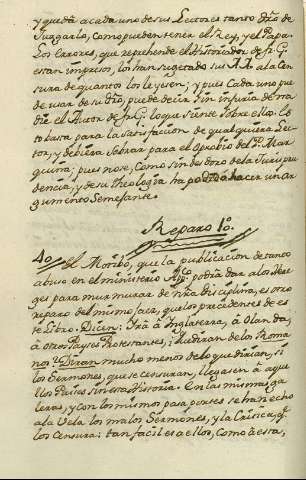 y queda a cada uno de sus Lectores tanto dro. de
Juzgarlo, como pueden tener el Rey, y el Papa.
Los errores, que reprehende el Historiador de Fr. G.
estan impresos, los han sugetado sus AA. a la Cen
sura de quantos los leyesen; y pues Cada uno pue
de usar de su dro, puede decir sin injuria de na
die el Autor de Fr. G. lo que siente sobre ellos. Es
to basta para la satisfaccion de qualquiera Lec
tor, y debiera sobrar para el oprobio del P. Mar
quina; pues no se, Como sin desdoro de la Jurispru
dencia, y de su theologia ha podido hacer un Ar
gumento Semejante.
Reparo 1o.
40 El Motibo, que la publicacion de tanto
abuso en el ministerio Apco. podrà dar a los Here
ges para murmurar de nra disciplina, es otro
reparo del mismo jaez, que los precedentes de es
te Libro. Dicen: Irà a Inglaterra, à Olanda,
à otros Payses Protestantes; i què diran de los Roma
nos? Diran mucho menos de lo que dirian, si
los Sermones, que se censuran, llegasen à aque
llos Paises sin esta Historia. En las mismas ga
leras, y con los mismos pasaportes se han echo
a la Vela los malos Sermones, y la Critica, q.
los Censura: tan facil es a ellos, Como à esta,